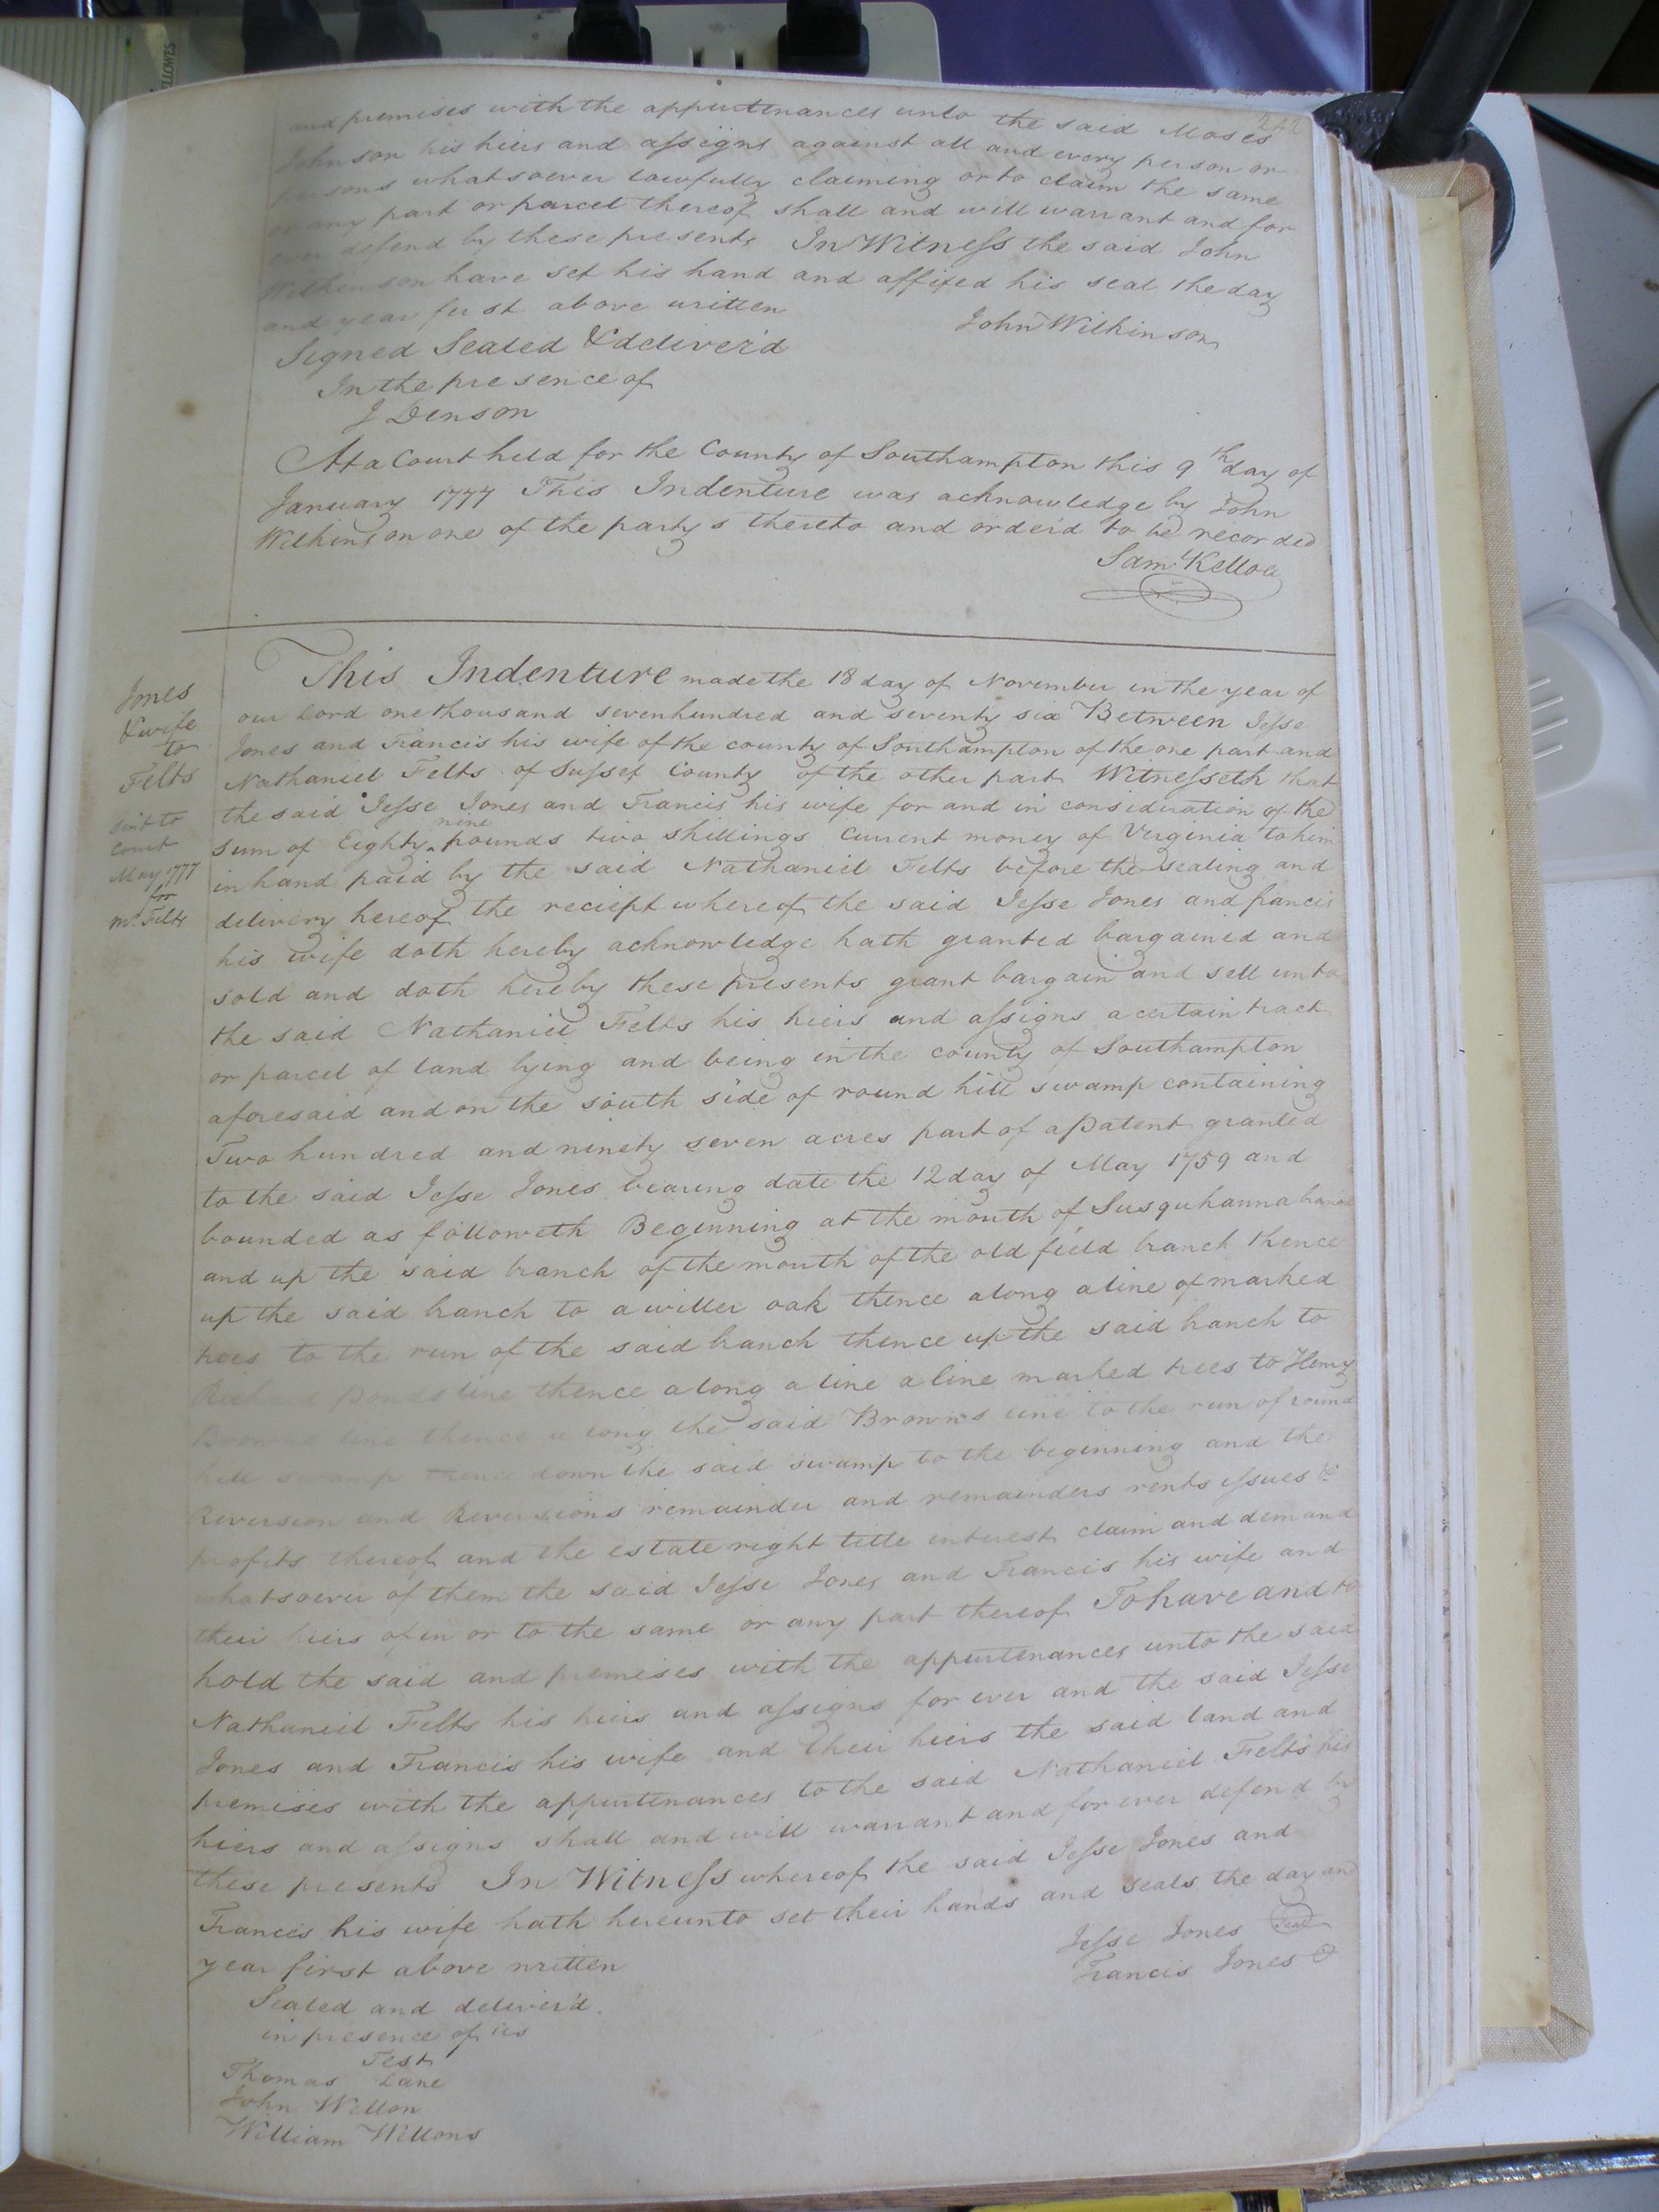 242
and premises with the appurtenances unto the said Moses
Johnson his hiers and assigns against all and every person or
persons whatsoever lawfully claiming or to claim the same
or any part or parcel thereof shall and will warrant and for
ever defend by these presents In Witness the said John
Wilkinson have set his hand and affixed his seal the day
and year first above written
John Wilkinson
Signed Sealed & deliver'd
In the presence of
J Denson
At a Court held for the County of Southampton this 9th day of
January 1777 This Indenture was acknowledge by John
Wilkinson one of the partys thereto and order'd to be recorded
Saml Kello
Jones
& wife
to
Felts
sent to
court
May 1777
for
Mr. Felts
This Indenture made the 18 day of November in the year of
our Lord one thousand seven hundred and seventy six Between Jesse
Jones and Francis his wife of the county of Southampton of the one part and
Nathaniel Felts of Sussex County of the other part Witnesseth that
the said Jesse Jones and Francis his wife for and in consideration of the
sum of Eighty nine pounds two shillings current money of Virginia to him
in hand paid by the said Nathaniel Felts before the sealing and
delivery hereof the reciept whereof the said Jesse Jones and francis
his wife doth hereby acknowledge hath granted bargained and
sold and doth hereby these presents grant bargain and sell unto
the said Nathaniel Felts his hiers and assigns a certain tract
or parcel of land lying and being in the county of Southampton
aforesaid and on the south side of round hill swamp containing
Two hundred and ninety seven acres part of a Patent granted
to the said Jesse Jones bearing date the 12 day of May 1759 and
bounded as followeth Beginning at the mouth of Susquhanna branch
and up the said branch of the mouth of the old field branch thence
up the said branch to a willer oak thence along a line of marked
trees to the run of the said branch thence up the said branch to
Richard Ponds line thence along a line a line marked trees to Henry
Browns line thence along the said Browns line to the run of round
hill swamp thence down the said swamp to the beginning and the
Reversion and Reversions remainder and remainders rents issues &
profits thereof and the estate right title interest claim and demand
whatsoever of them the said Jesse Jones and Francis his wife and
their hiers of in or to the same or any part thereof To have and to
hold the said and premises with the appurtenances unto the said
Nathaniel Felts his hiers and assigns for ever and the said Jesse
Jones and Francis his wife and their hiers the said land and
premises with the appurtenances to the said Nathaniel Felts his
hiers and assigns shall and will warrant and for ever defend by
these presents In Witness whereof the said Jesse Jones and
Francis his wife hath hereunto set their hands and seals the day and
year first above written
Jesse Jones Seal
Francis Jones
Sealed and deliver'd
in presence of us
Test
Thomas Lane
John Wellon
William Wellons